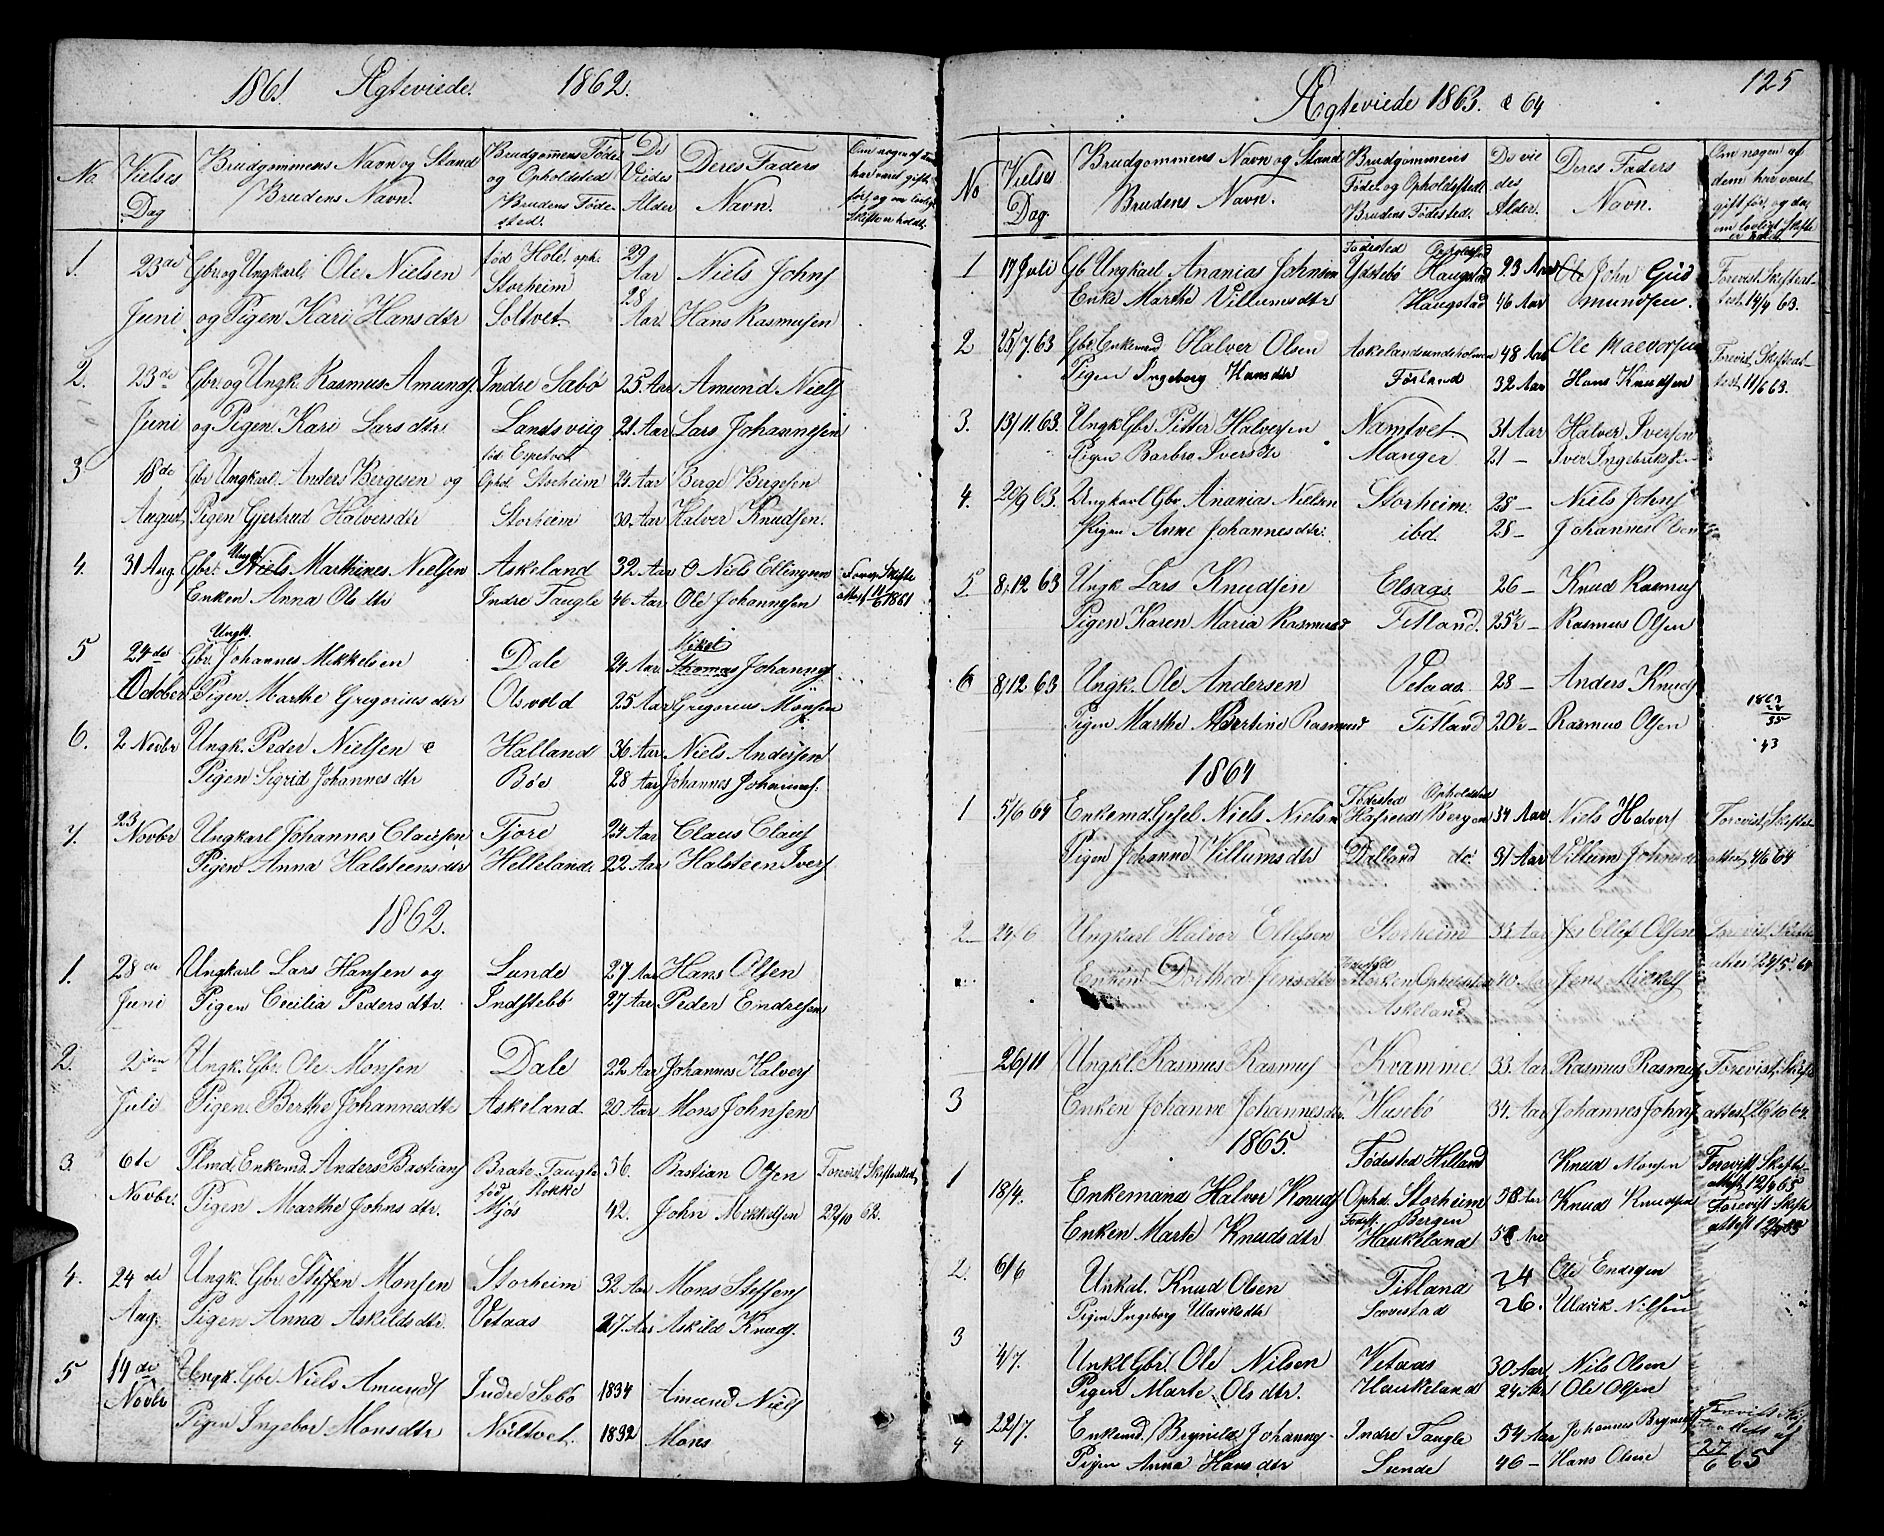 1861. Ægteviede. 1862.
No. Vielses Dag Brudgommens Navn og Stand Brudens Navn. Brudgomens Føde og Opholdsted Brudens Fødested. De Viedes Alder Deres Faders Navn. Om nogen af dem har været gift før, og om lovligt Skifte er holdt.
1. 23de Gbr. og Ungkarl Ole Nielsen fød Hole. oph. Storheim 29 Aar Niels Johns
Juni og Pigen Kari Hansdtr Soltvet 28 Aar Hans Rasmusen
2. 23de Gbr. og Ungk. Rasmus Amunds. Indre Sæbø 25. Aar Amund Niels
Juni og Pigen Kari Larsdtr Landsviig 21 Aar Lars Johannesen
3 18de Gbr Ungkarl. Anders Bergesen og fød Espetvet Ophd. Storheim 24 Aar Berge Bergesen
August Pigen Gjertrud Halversdtr Storheim 30. Aar Halver Knudsen.
4. 31 Aug. Gbr. Ungk Niels Mathines Nielsen Askeland 32 Aar Niels Ellingsen Forev. Skifte
Enken Anna Olsdtr Indre Taugle 46 Aar Ole Johannesen attest 11/6 1861
5 24de Gbr. Ungk. Johannes Mikkelsen Dale 24 Aar Mikel Thomas Johannes
October Pigen Marthe Gregoriusdtr Olsvold 25 Aar Gregorius Monsen
6. 2 Novbr Ungk. Peder Nielsen & Halland 36 Aar Niels Andersen
Pigen Sigrid Johannesdtr Bøe 28 Aar Johannes Johannes.
7. 23 Novbr Ungkarl Johannes Clausen Fjore 24 Aar Claus Claus
Pigen Anna Halsteensdtr Helleland. 22 Aar Halsteen Ivers
1862.
1. 28de Ungkarl Lars Hansen og Lunde 27 Aar Hans Olsen
Juni Pigen Cecilia Pedersdtr. Indstebø 27 Aar Peder Endresen
2. 2den Ungk. Gbr. Ole Monsen Dale 22 Aar Johannes Halvers
Juli Pigen. Berthe Johannesdtr Askeland. 20 Aar Mons Johnsen
3. 6te Plmd. Enkemd. Anders Bastians Brate Taugle 56. Bastian Olsen Forevist Skifteattest
Novbr. Pigen Marthe Johnsdtr. fød Stokke Mjøs 42. John Mikkelsen 22/10 62.
4. 24de Ungk. Gbr Steffen Monsen Storheim 32 Aar Mons Steffens
Aug. Pigen Anna Askildsdtr. Vetaas 27. Aar Askild Knuds.
5 14de Ungk. Gbr. Niels Amunds Indre Sebø 1834 Amund Niels
Novbr Pigen Ingebor Monsdtr Nöttvet. 1832 Mons
Ægteviede 1863. & 64 125
No Vielses Dag. Brudgommens Navn og Stand Brudens Navn. Brudgommens Føde og Opholdsstede Brudens Fødested. De viedes Alder. Deres Faders Navn. Om nogen af dem har været gift før, og da, om lovligt Skifte er holdt
1 17 Juli Gb Ungkarl Ananias Johnsen Fødested Ydstebø Opholdssted Haugstad 23 Aar John Gud
Enke Marthe Villumsdtr Haugstad 46 Aar mundsen. Forevist Skifteattest 14/4 63.
2 25/7. 63 Gbr. Enkemd Halver Olsen Askelandsundsholmen 48 Aar Ole Halvorsen Forevist Skifteat
Pigen Ingeborg Hansdtr Førland 32 Aar Hans Knudsen test, 11/6 63.
3. 13/11 63. Ungk Gbr. Pitter Halversen Namtvet. 31 Aar Halver Iversen
Pigen Barbro Iversdtr Manger 21 – Iver Ingebrigtsen
4. 20/9 63. Ungkarl Gbr. Ananias Nielsen Storheim. 28 – Niels Johns
Pigen Anne Johannesdtr. ibd. 28 – Johannes
5. 8/12 63 Ungk Lars Knudsen Elsaas. 26 – Knud Rasmus
Pigen Karen Maria Rasmusd Titland. 25½ – Rasmus Olsen
6 8/12 63 Ungk. Ole Andersen Vetaas. 28 – Anders Knuds
Pigen Marthe Martine Rasmusd Titland 20½ – Rasmus Olsen
1863
28
35
43
1864
1 5/6 64 Enkemd. Gesel Niels Nielsen Fødested Opholdsted Bergen 34 Aar Niels Halvers Forevist, Skifte
Pigen Johanne Villumsdtr Dalland do 31 Aar Villum Johnsen attest, 4/6 64
2 24/6 Ungkarl Halvor Ellefsen Storheim 33 Aar Ellef Olsen Forevist, Skifte
Enken Dorthea Jensdtr Fødested Opholdsted Askeland 40. Aar Jens Mickels attest 24/5 64
3 26/11 Ungkl. Rasmus Rasmus Kvamme 33 Aar Rasmus Rasmus Forevist, Skifte
Enken Johanne Johannesdtr. Husebö 34. Aar Johannes Johns attest, 26/10 64.
1865.
1 18/4. Enkemand Halver Knuds Fødested Hilland Ophd. Storheim 38 Aar Knud Monsen Forevist Skifteattest, 12/4 65
Enken Marte Knudsdtr Fødest. Bergen Haukeland 58 Aar Knud Knudsen Forevist Skifteattest
2. 6/6 Unkal. Knud Olsen Titland 24 Ole Endresen
Pigen Ingeborg Ulrikdtr 26. Ulrik Nilsen
3 4/7. Unkl Gbr. Ole Nilsen Vetaas 30 Aar Nils Olsen
Pigen Marte Olsdtr. Haukeland 24 Aar Ole Olsen
4 22/7. Enkemd. Brynild Johannes Indre Taugle 54 Aar Johannes Brynilds Forevist Skifteattest af
Pigen Anna Hansdtr Lunde 46 – Hans Olsen 27/6 65